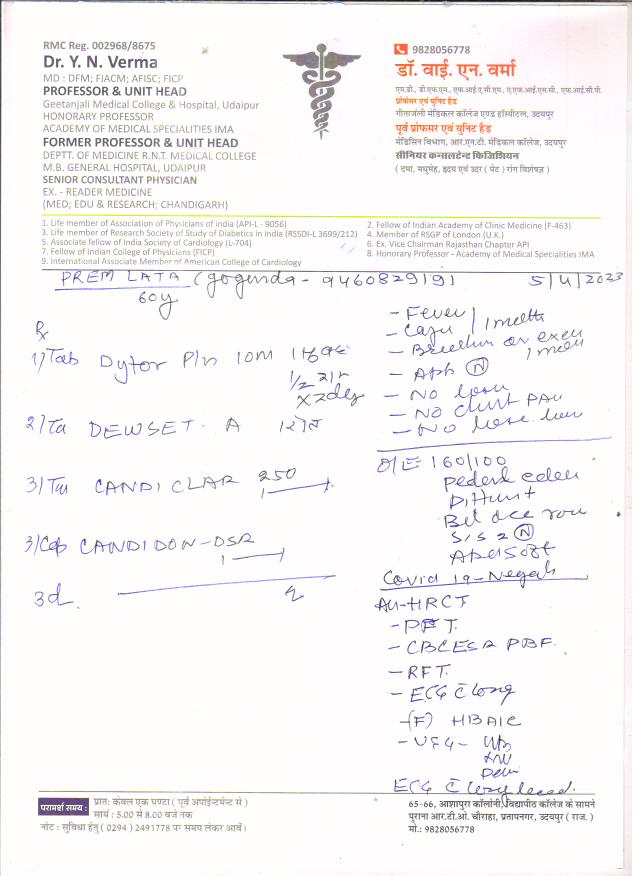 RMC Reg. 002968/8675
Dr. Y. N. Verma
MD : DFM; FIACM; AFISC; FICP
PROFESSOR & UNIT HEAD
Geetanjali Medical College & Hospital, Udaipur
HONORARY PROFESSOR
ACADEMY OF MEDICAL SPECIALITIES IMA
FORMER PROFESSOR & UNIT HEAD
DEPTT. OF MEDICINE R.N.T. MEDICAL COLLEGE
M.B. GENERAL HOSPITAL, UDAIPUR
SENIOR CONSULTANT PHYSICIAN
EX. - READER MEDICINE
(MED; EDU & RESEARCH; CHANDIGARH)
9828056778
डॉ. वाई. एन. वर्मा
एम.डी., डी.एफ.एम., एफ.आई.ए.सी.एम., ए.एफ.आई.एस.सी., एफ.आई.सी.पी.
प्रोफसर एवं यूनिट हैड
गीतान्जली मेडिकल कॉलेज एण्ड हॉस्पीटल, उदयपुर
पूर्व प्रोफसर एवं यूनिट हैड
मेडिसिन विभाग, आर.एन.टी. मेडिकल कॉलेज, उदयपुर
सीनियर कन्सलटेन्ट फिजिशियन
( दमा, मधुमेह, हृदय एवं उदर ( पेट ) रोग विशेषज्ञ )
1. Life member of Association of Physicians of India (API-L - 9056)
2. Fellow of Indian Academy of Clinic Medicine (F-463)
3. Life member of Research Society of Study of Diabetics in India (RSSDI-L 3699/212)
4. Member of RSGP of London (U.K.)
5. Associate fellow of India Society of Cardiology (L-704)
6. Ex. Vice Chairman Rajasthan Chapter API
7. Fellow of Indian College of Physicians (FICP)
8. Honorary Professor - Academy of Medical Specialities IMA
9. International Associate Member of American College of Cardiology
PREM LATA (gogunda - 9460829191 5/4/2023
60y
Rx
1) Tab Dytor Plus 10M
1/2
x 2 days
2) Ta DEWSET. A
3) Ta CANDICLAR 250
1
3) Cap CANDIDON-DSR
1
3d.
- Fever
- 
- Breathe on exer
- (N)
- NO
- NO Chest Pain
- NO
O/E 160/100
Pedal edem
S1 S2 (N)
Abd Soft
Covid 19 - Negati
Au - HRCT
- PFT.
- CBC ESR PBF.
- RFT.
- ECG C long
- (F) HBA1C
ECG C long lead.
परामर्श समय :
प्रातः केवल एक घण्टा ( पूर्व अपोईन्टमेन्ट से )
सायं : 5.00 से 8.00 बजे तक
नोट : सुविधा हेतु ( 0294 ) 2491778 पर समय लेकर आवें।
65-66, आशापुरा कॉलोनी, विद्यापीठ कॉलेज के सामने
पुराना आर.टी.ओ. चौराहा, प्रतापनगर, उदयपुर ( राज. )
मो.: 9828056778